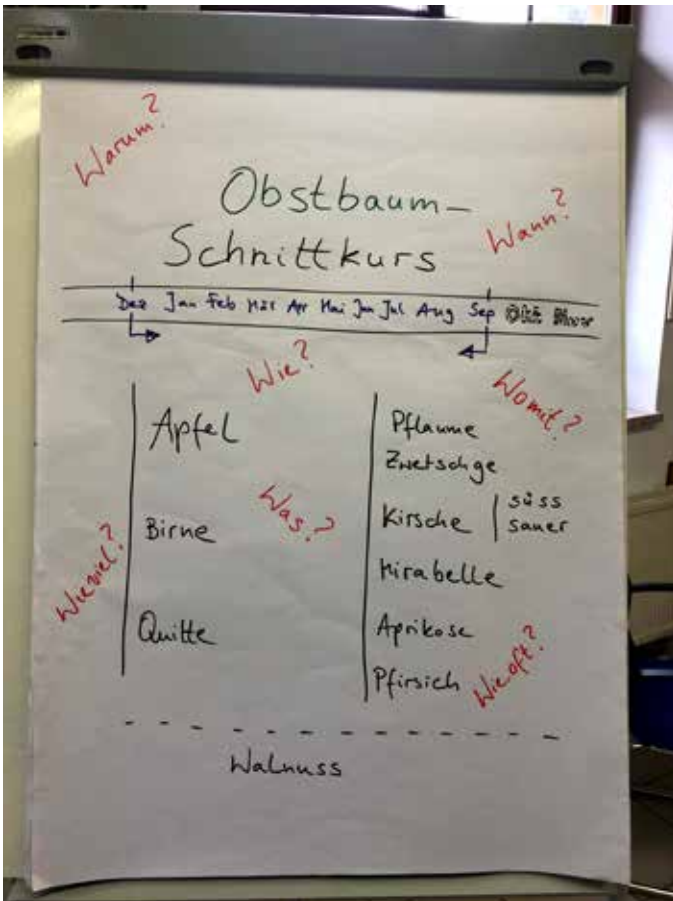 Warum?
Obstbaum-
Schnittkurs
Wann?
Dez Jan Feb Mär Apr Mai Jun Jul Aug Sep
Wie?
Womit?
Apfel
Birne
Quitte
Was?
Wieviel?
Pflaume
Zwetschge
Kirsche | süss
sauer
Mirabelle
Aprikose
Pfirsich
Wie oft?
Walnuss